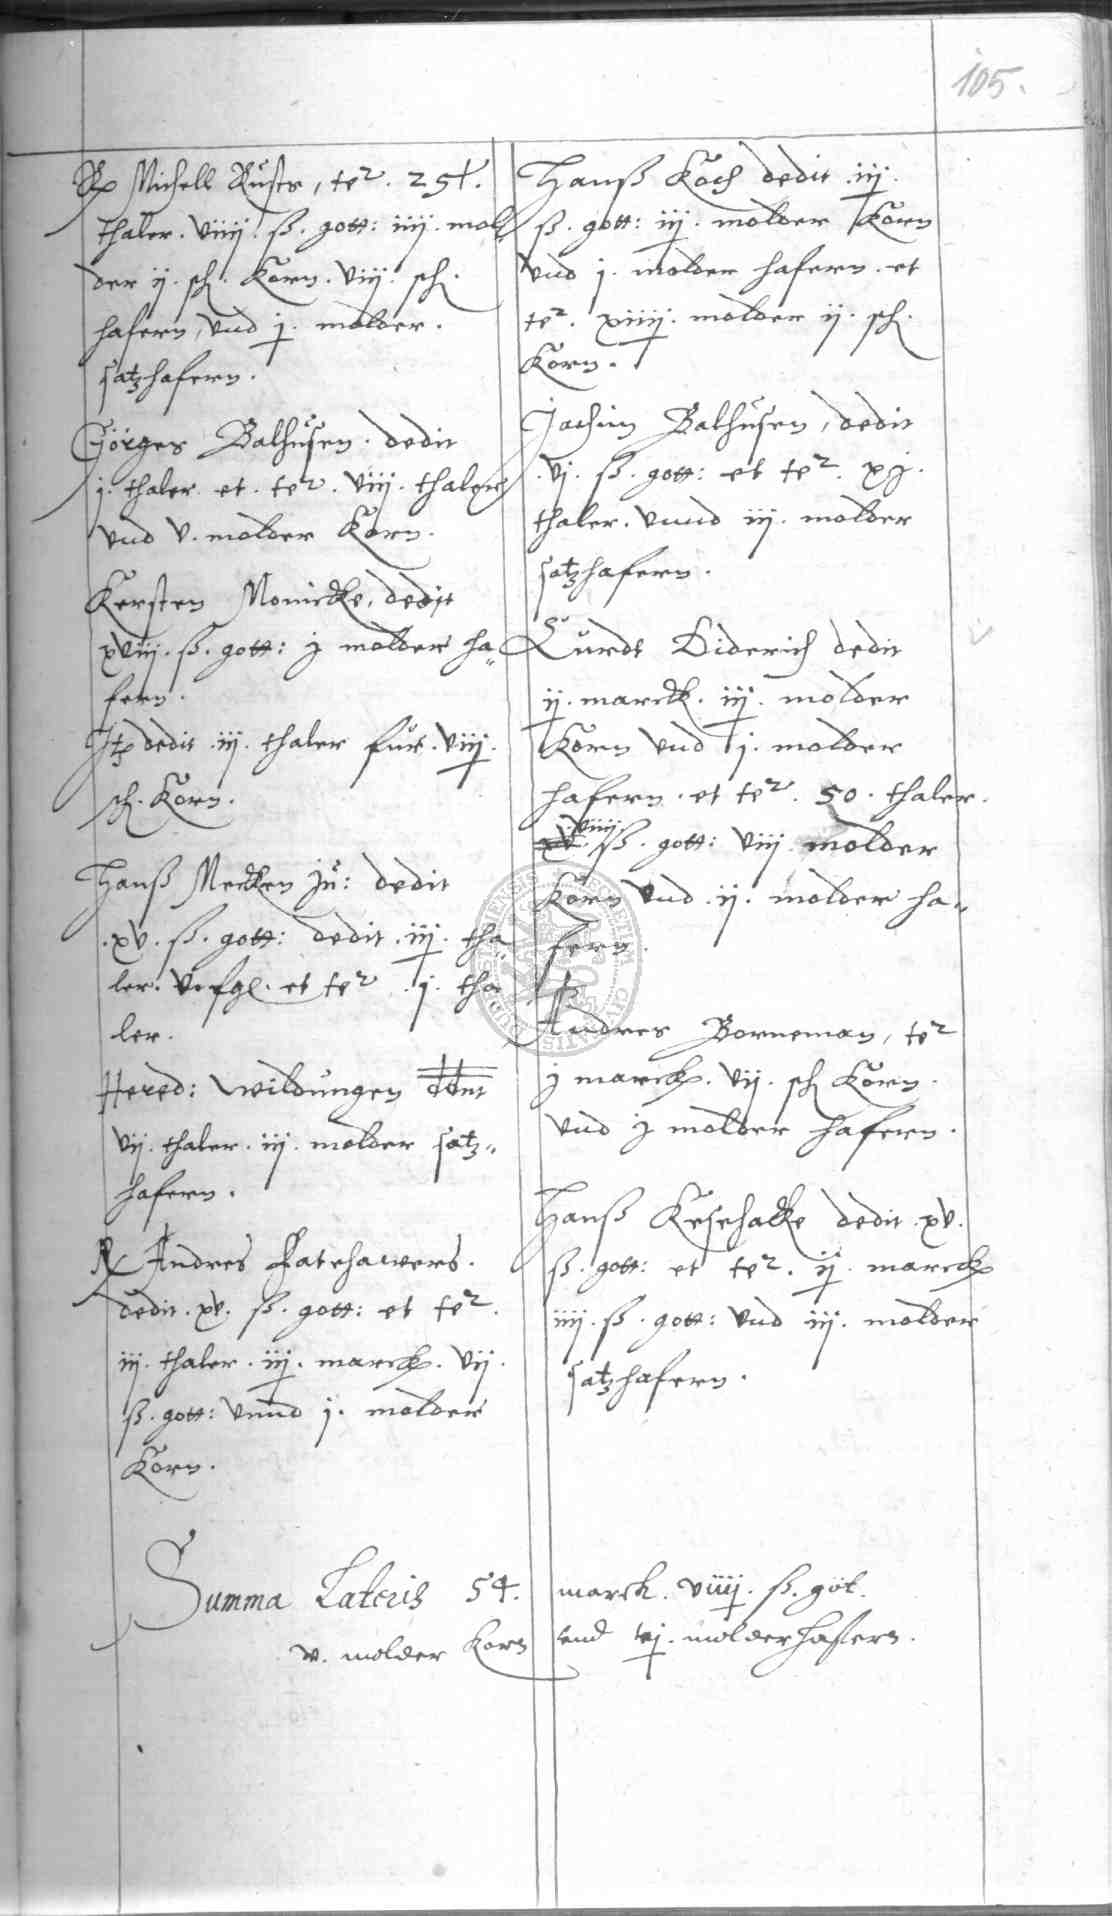 105.
Rp Michell Rusts, tẽ². 25ƚ.
thaler. viiij. ß. gott: iiij. mol
der ij. sch. Korn. viij. sch.
hafern, vnd j. molder.
satzhafern.
Görges Balhusen. dedit
j. thaler et. tẽ². viij. thaler
vnd v. molder Korn.
Kersten Monicke, dedit
xviij. ß. gott: j molder ha„
fern.
Itp dedit iij. thaler fur. viij.
sch. Korn.
Hanß Mecken ju: dedit
.xv. ß. gott: dedit. iij. tha„
ler. et tẽ² .j. tha
ler.
Hered: Wildungen ddnt
vij. thaler. iij. molder satz„
hafern.
Rx Andres Fatehawers.
dedit. xv. ß. gott: et tẽ².
iij. thaler. iij. marck. vij.
ß. gott: vnnd j. molder
Korn.
Hanß Koch dedit iij.
ß. gott: iij. molder Korn
vnd j. molder hafern. et
tẽ². xiiij. molder ij. sch.
Korn.
Jachim Balhusen, dedit
.vj. ß. gott: et tẽ². xj.
thaler. vnnd iij. molder
satzhafern.
Curdt Diderich dedit
ij. marck. iij. molder
Korn vnd j. molder
hafern. et tẽ². 50. thaler.
.viiij
xv. ß. gott: viij molder
Korn vnd .ij. molder ha„
fern.
Andres Borneman, tẽ²
j marck. vij. sch Korn.
vnd j molder hafern.
Hanß Kesehacke dedit. xv.
ß. gott: et tẽ². ij. marck
iiij. ß. gott: vnd iij. molder
satzhafern.
Summa Lateris 54. marck. viiij. ß. got.
v. molder Korn vnd vj. molder hafern.